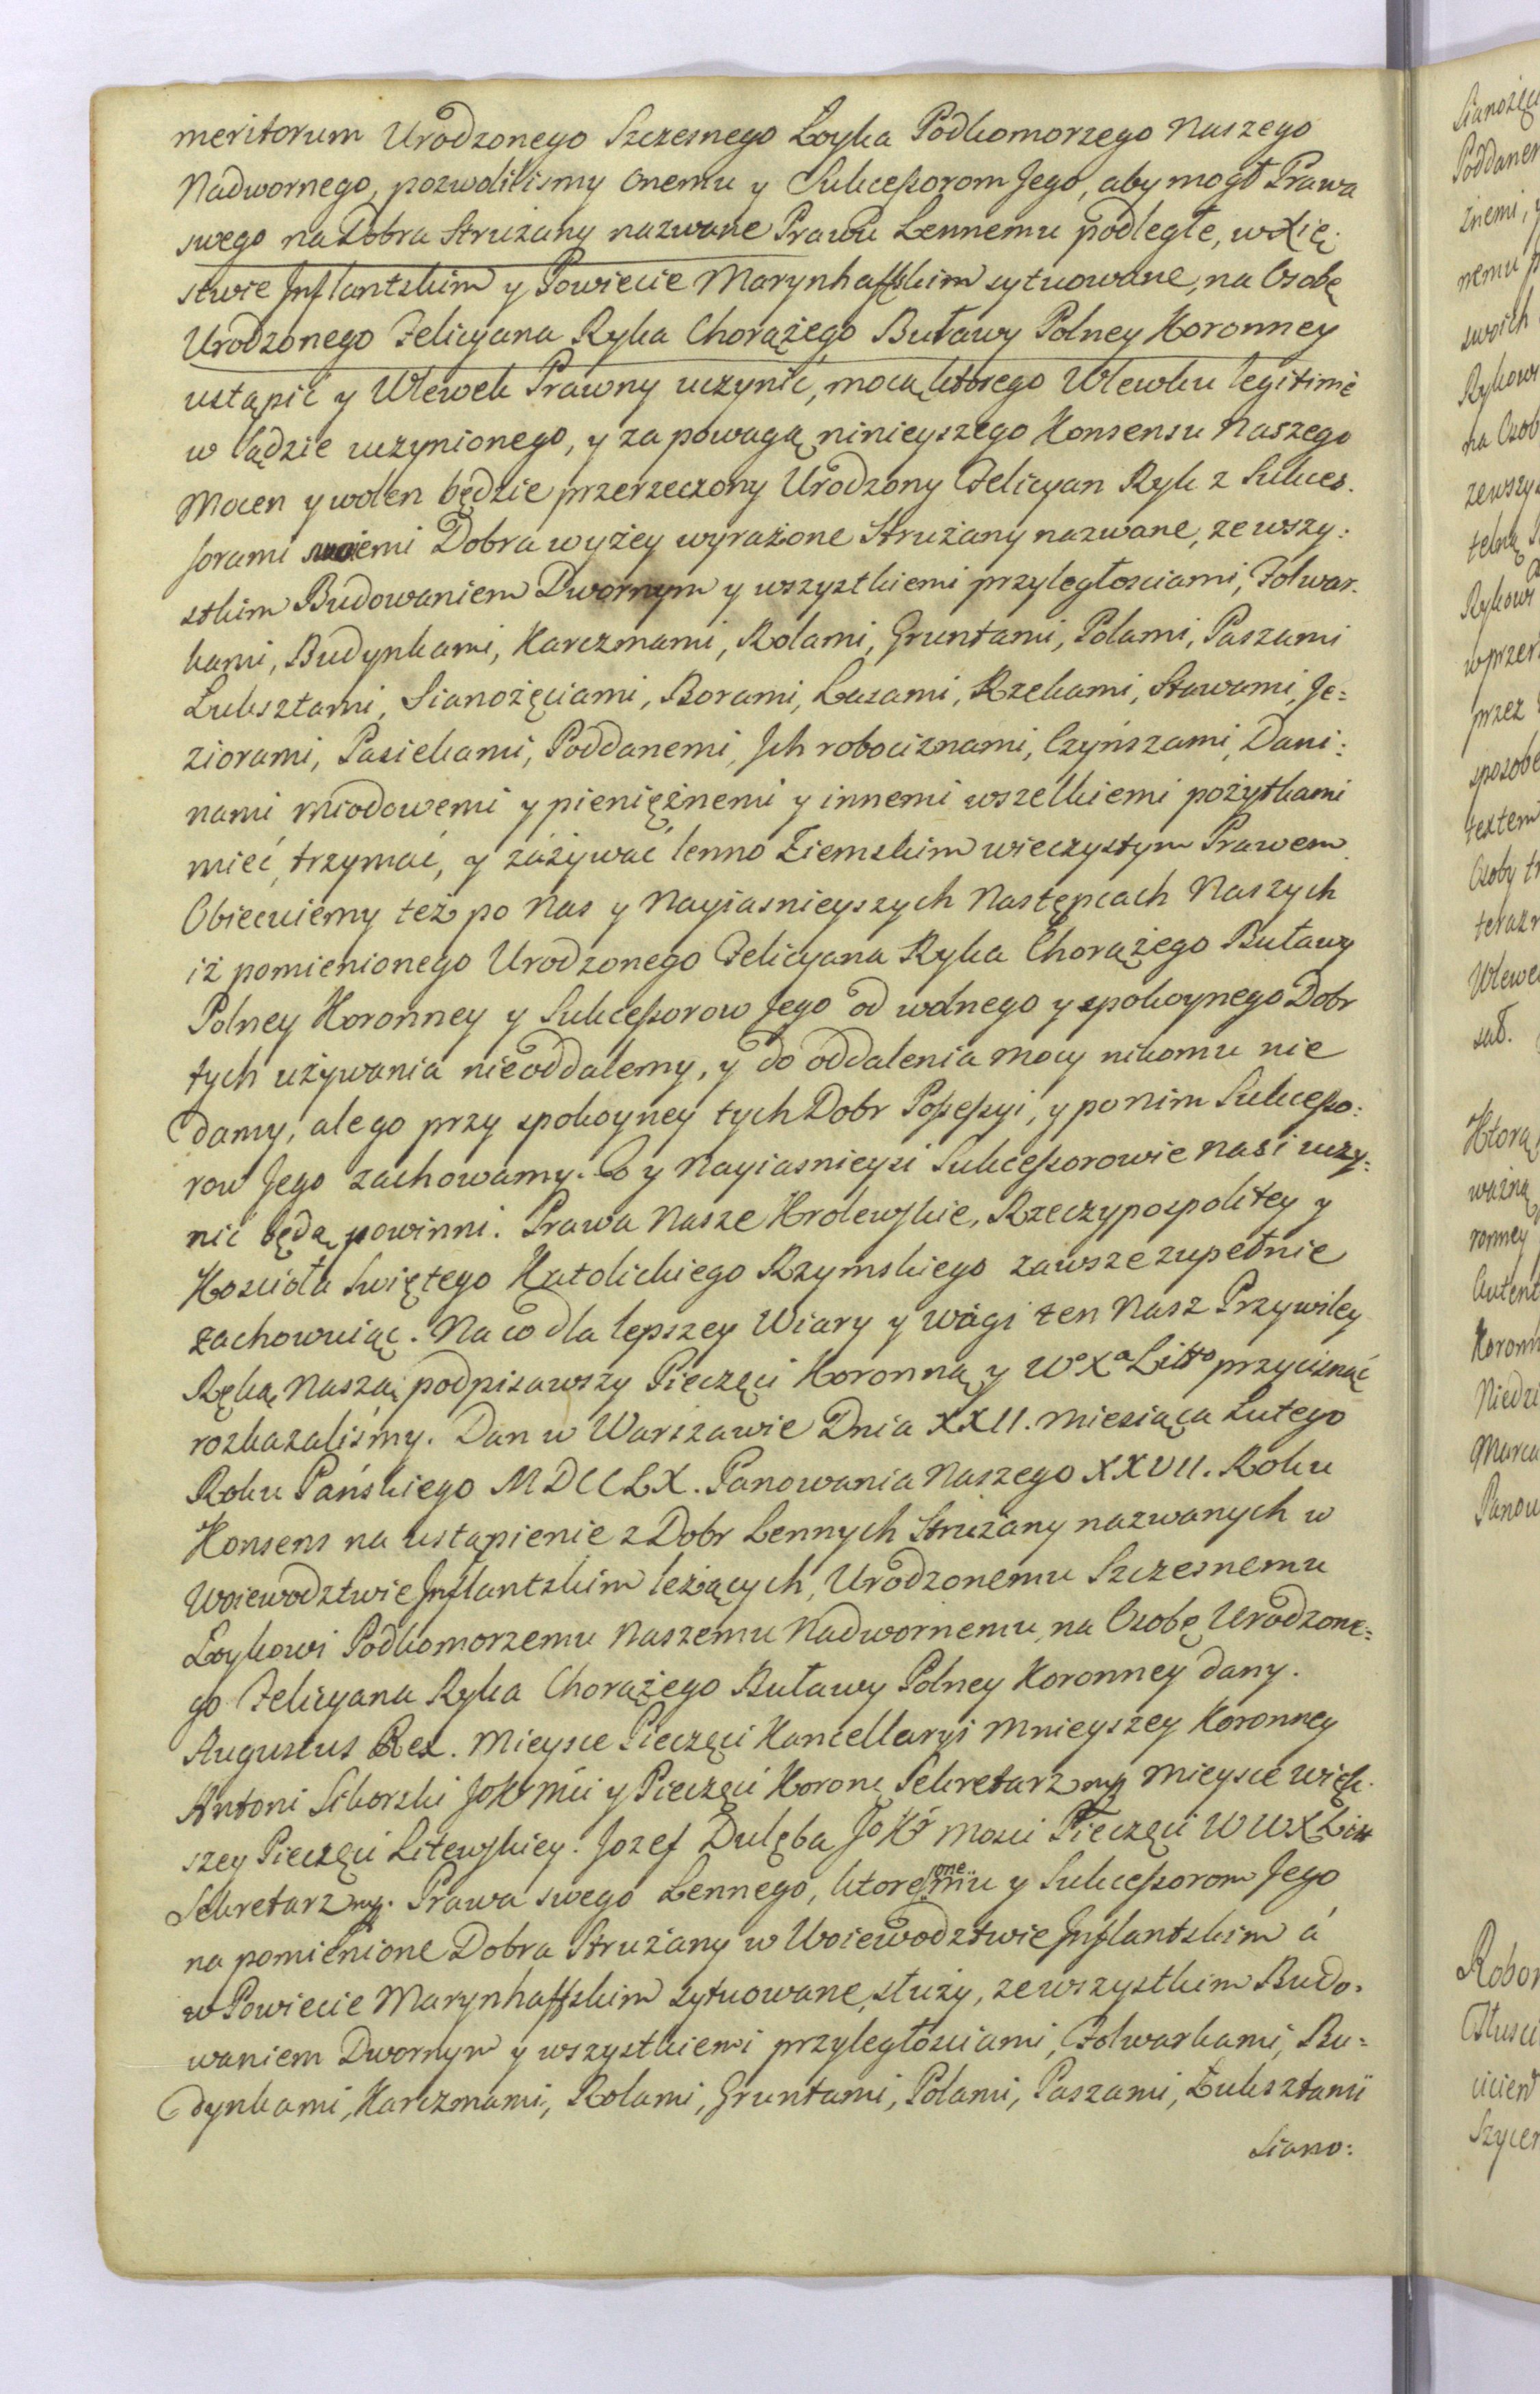 meritorum Urodzonego Szczesnego Łoyka Podkomorzego Naszego
Nadwornego, pozwolilismy onemu y Sukceßorom Jego, aby mogł Prawa
swego na Dobra Strużany nazwane Prawu Lennemu podległe, w Xię:
stwie Jnflantskim y Powiecie Marynhaffskim sytuowane, na Osobę
Urodzonego Felicyana Ryka Chorążego Buławy Polney Koronney
ustąpić y Wlewek Prawny uczynić, mocą ktorego Wlewku legitimè
w Sądzie uczynionego, y za powagą ninieyszego Konsensu Naszego
Mocen y wolen będzie przerzeczony Urodzony Felicyan Ryk z Sukces.
sorami swoiemi Dobra wyżey wyrażone Strużany nazwane, ze wszy:
stkim Budowaniem Dwornym y wszystkiemi przyległosciami, Folwar.
kami, Budynkami, Karczmami, Rolami, Gruntami, Polami, Paszami
Łuksztami, Sianożęciami, Borami, Lasami, Rzekami, Stawami, Je=
ziorami, Pasiekami, Poddanemi, Jch robociznami, Czyńszami, Dani:
nami miodowemi y pieniężnemi y innemi wszelkiemi pożytkami
mieć, trzymać, y zażywać lenno Ziemskim wieczystym Prawem.
Obiecuiemy też po Nas y Nayiasnieyszych Następcach Naszych
iż pomienionego Urodzonego Felicyana Ryka Chorążego Buławy
Polney Koronney y Sukceßorow Jego od wolnego y spokoynego Dobr
tych używania nieoddalemy, y do oddalenia mocy nikomu nie
damy, ale go przy spokoyney tych Dobr Poßeßyi, y po nim Sukceßo:
row Jego zachowamy. Co y Nayiasnieysi Sukceßorowie nasi uczy:
nić będą powinni. Prawa Nasze Krolewskie, Rzeczypospolitey y
Kosciołá Swiętego Katolickiego Rzymskiego zawsze zupełnie
zachowuiąc. Na co dla lepszey Wiary y wagi ten Nasz Przywiley
Ręką Naszą podpisawszy Pieczęci Koronną y Wº Xª Littº przycisnąć
rozkazaliśmy. Dan w Warszawie Dnia XXII. Miesiąca Lutego
Roku Pańskiego MDCCLX. Panowania Naszego XXVII. Roku
Konsens na ustąpienie z Dobr Lennych Strużany nazwanych w
Woiewodztwie Jnflantskim leżących, Urodzonemu Szczesnemu
Łoykowi Podkomorzemu Naszemu Nadwornemu, na Osobę Urodzone=
go Felicyana Ryka Chorążego Buławy Polney Koronney dany.
Augustus Rex. Mieysce Pieczęci Kancellaryi Mnieyszey Koronney
Antoni Sikorski JoKr Mci y Pieczęci Koronę Sekretarz mp Mieysce więk:
szey Pieczęci Litewskiey. Jozef Dulęba Jº Kr Mosci Pieczęci W W X Litt
Sekretarz mp. Prawa swego Lennego, ktore onemu y Sukceßorom Jego
na pomienione Dobra Strużany w Woiewodztwie Jnflantskim á
w Powiecie Marynhaffskim sytuowane, służy, ze wszystkim Budo.
waniem Dwornym y wszystkiemi przyległosciami, Folwarkami, Bu=
dynkami, Karczmami, Rolami, Gruntami, Polami, Paszami, Łuksztami
Siano: